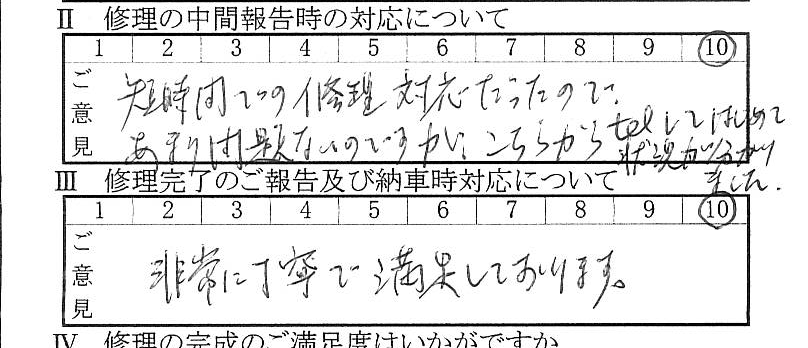 Ⅱ 修理の中間報告時の対応について
1 2 3 4 5 6 7 8 9 10
ご意見
短時間での修理対応だったので、
あまり問題ないのですが、こちらからtelしてはじめて
状況が分かり
ました。
Ⅲ 修理完了のご報告及び納車時対応について
1 2 3 4 5 6 7 8 9 10
ご意見
非常に丁寧で満足しております。
Ⅳ 修理の完成のご満足度はいかがですか